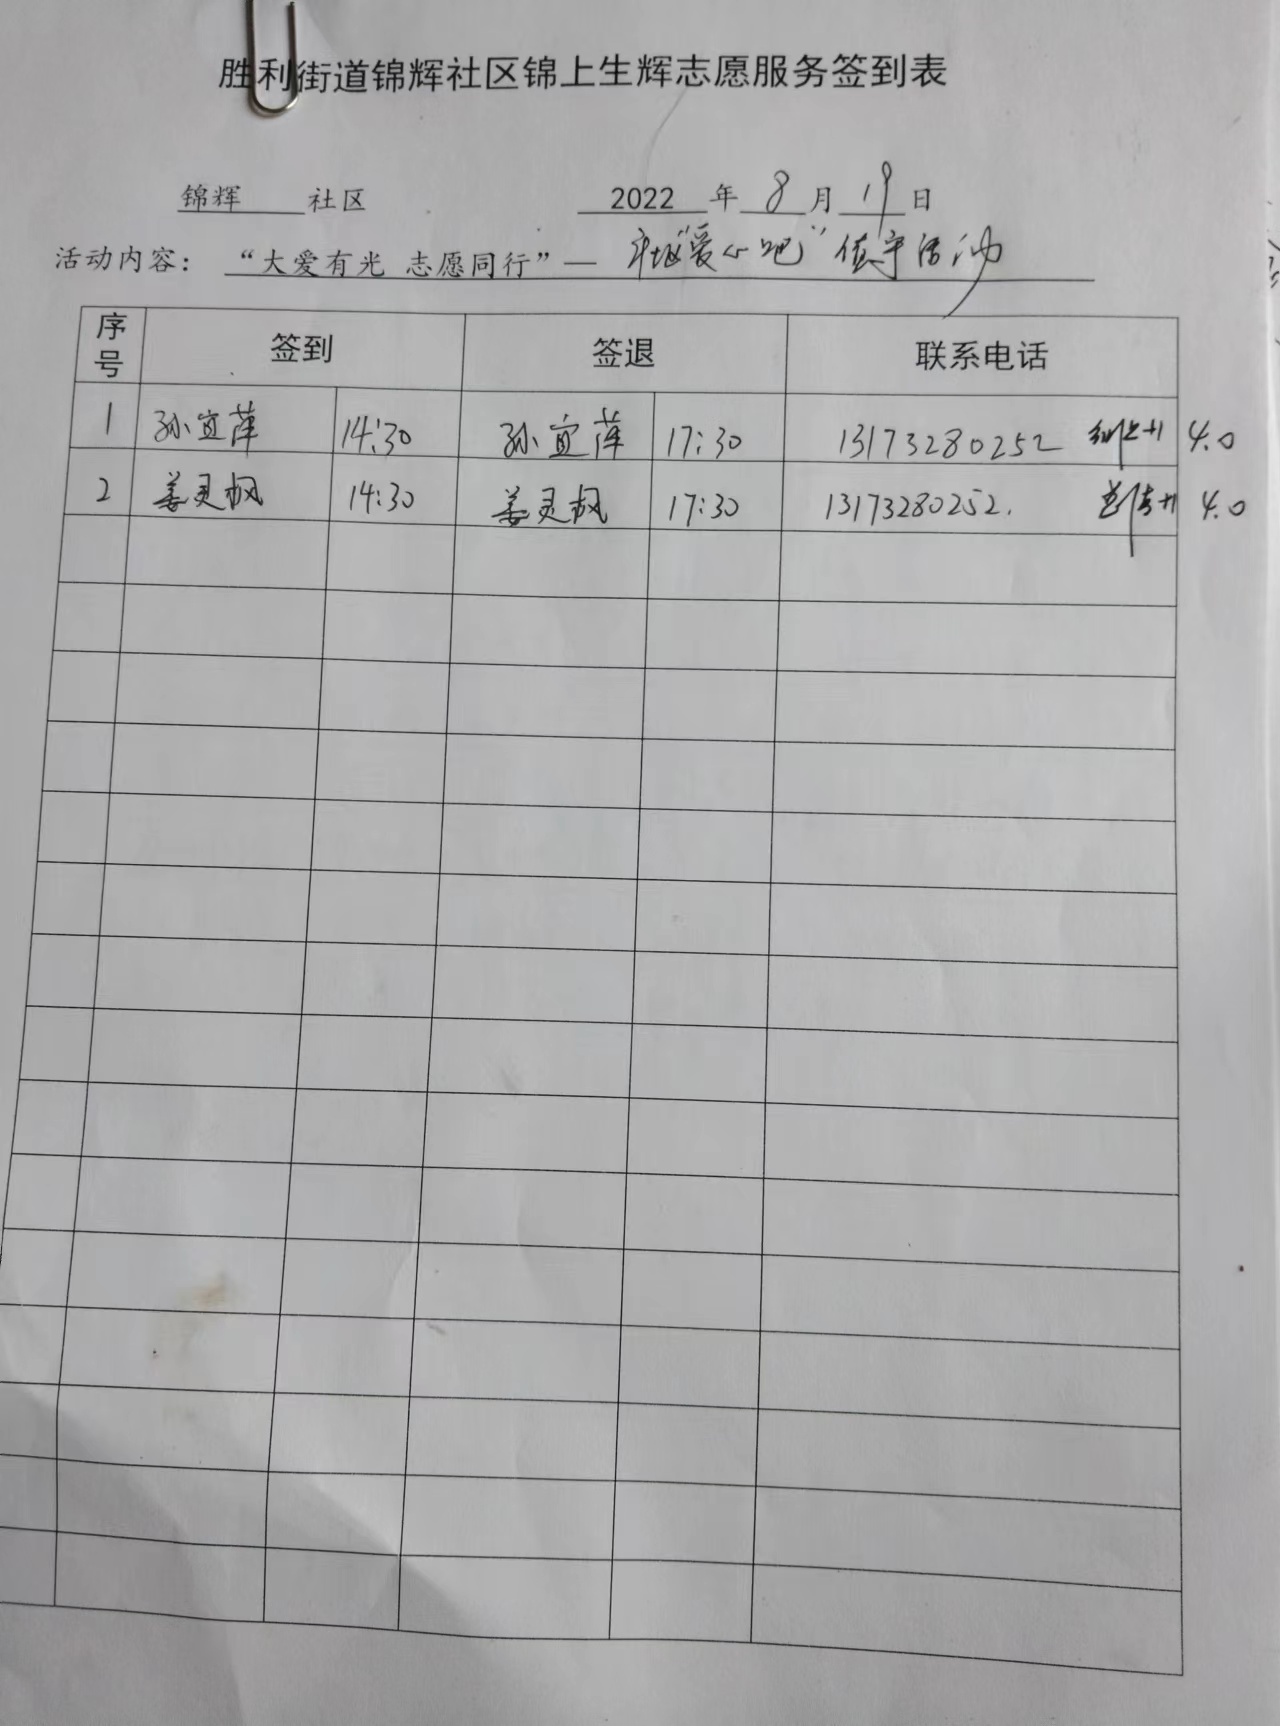 胜利街道锦辉社区锦上生辉志愿服务签到表
锦辉 社区 2022 年 8 月 19 日
活动内容：“大爱有光 志愿同行”— 社区“爱心吧”值守活动
序号 签到 签退 联系电话
1 孙宜萍 14:30 孙宜萍 17:30 13173280252 4.0
2 姜灵枫 14:30 姜灵枫 17:30 13173280252. 4.0